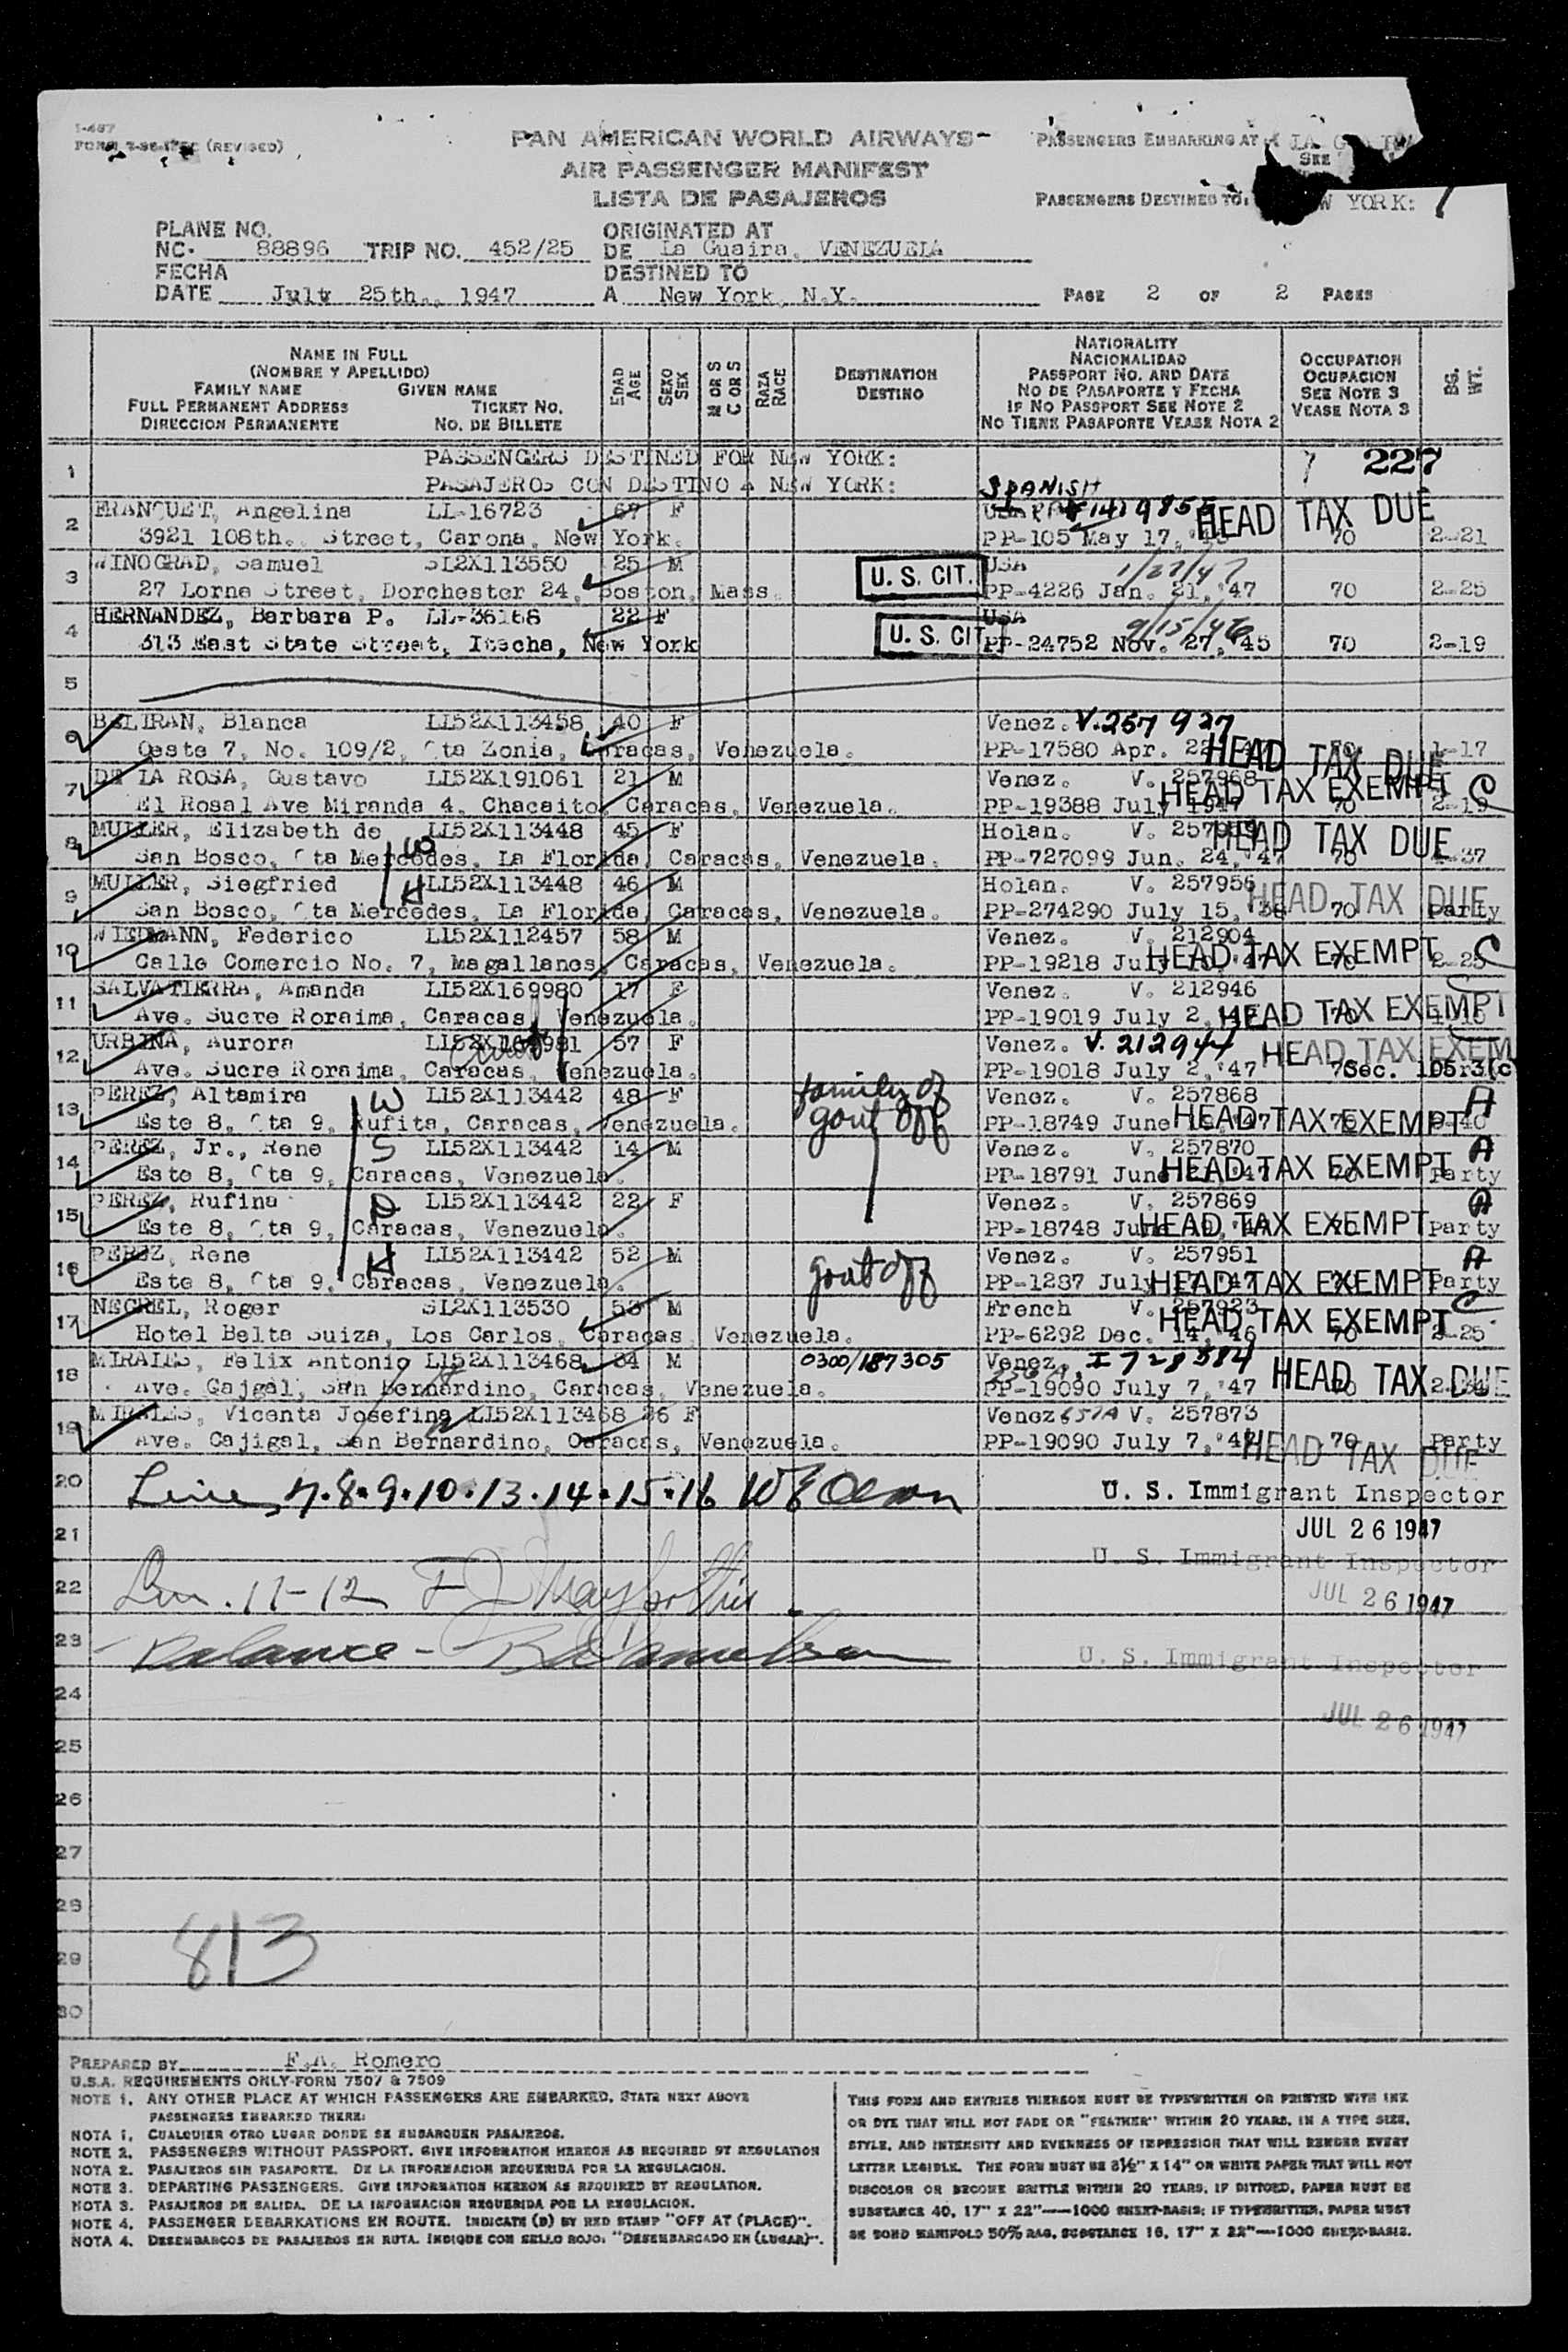 I-467
FORM (REVISED)
PAN AMERICAN WORLD AIRWAYS
AIR PASSENGER MANIFEST
LISTA DE PASAJEROS
PASSENGERS EMBARKING AT
SEE
PASSENGERS DESTINED TO: YORK:
PLANE NO.
NC- 88896 TRIP NO. 452/25
ORIGINATED AT
DE La Guaira, VENEZUELA
FECHA
DATE July 25th., 1947
DESTINED TO
A New York, N.Y.
PAGE 2 OF 2 PAGES
NAME IN FULL
(NOMBRE Y APELLIDO)
FAMILY NAME GIVEN NAME
FULL PERMANENT ADDRESS TICKET NO.
DIRECCION PERMANENTE NO. DE BILLETE
EDAD
AGE
SEXO
SEX
M OR S
C OR S
RAZA
RACE
DESTINATION
DESTINO
NATIONALITY
NACIONALIDAD
PASSPORT NO. AND DATE
NO DE PASAPORTE Y FECHA
IF NO PASSPORT SEE NOTE 2
NO TIENE PASAPORTE VEASE NOTA 2
OCCUPATION
OCUPACION
SEE NOTE 3
VEASE NOTA 3
BG.
WT.
1 PASSENGERS DESTINED FOR NEW YORK: 227
PASAJEROS CON DESTINO A NEW YORK: SPANISH
2 FRANQUET, Angelina LL-16723 67 F HEAD TAX DUE
3921 108th. Street, Carona, New York. PP-105 May 17, 70 2-21
3 WINOGRAD, Samuel SL2X113550 25 M U. S. CIT. USA 1/27/47
27 Lorne Street, Dorchester 24, Boston, Mass. PP-4226 Jan. 21, '47 70 2-25
4 HERNANDEZ, Barbara P. LL-36168 22 F U. S. CIT. USA 9/15/46
313 East State Street, Itecha, New York PP-24752 Nov. 27, '45 70 2-19
5
6 BELTRAN, Blanca LL52X113458 40 F Venez. V.257927
Oeste 7, No. 109/2, Cta Zonia, Caracas, Venezuela. PP-17580 Apr. 22, HEAD TAX DUE 1-17
7 DE LA ROSA, Gustavo LL52X191061 21 M Venez. V. 257968
El Rosal Ave Miranda 4, Chacaito, Caracas, Venezuela. PP-19388 July 1947 HEAD TAX EXEMPT C 2-19
8 MULLER, Elizabeth de W LL52X113448 45 F Holan. V. HEAD TAX DUE
San Bosco, Cta Mercedes, La Florida, Caracas, Venezuela. PP-727099 Jun. 24, '47 70 -37
9 MULLER, Siegfried H LL52X113448 46 M Holan. V. 257956 HEAD TAX DUE
San Bosco, Cta Mercedes, La Florida, Caracas, Venezuela. PP-274290 July 15, '38 70 Party
10 WIEDMANN, Federico LL52X112457 58 M Venez. V. 212904
Calle Comercio No. 7, Magallanes, Caracas, Venezuela. PP-19218 July HEAD TAX EXEMPT C 2-25
11 SALVATIERRA, Amanda LL52X169980 17 F Venez. V. 212946
Ave. Sucre Roraima, Caracas, Venezuela. PP-19019 July 2, HEAD TAX EXEMPT
12 URBINA, Aurora LL52X169981 57 F Venez. V. 212944 HEAD TAX EXEM
Ave. Sucre Roraima, Caracas, Venezuela. PP-19018 July 2, '47 Sec. 105.3(c
13 PEREZ, Altamira W LL52X113442 48 F family of Venez. V. 257868 A
Este 8, Cta 9, Rufita, Caracas, Venezuela. govt off PP-18749 June HEAD TAX EXEMPT -40
14 PEREZ, Jr., Rene S LL52X113442 14 M Venez. V. 257870 A
Este 8, Cta 9, Caracas, Venezuela. PP-18791 June HEAD TAX EXEMPT Party
15 PEREZ, Rufina D LL52X113442 22 F Venez. V. 257869 A
Este 8, Cta 9, Caracas, Venezuela. PP-18748 June HEAD TAX EXEMPT Party
16 PEREZ, Rene H LL52X113442 52 M govt off Venez. V. 257951 A
Este 8, Cta 9, Caracas, Venezuela. PP-1287 July HEAD TAX EXEMPT Party
17 NEGREL, Roger SL2X113530 53 M French V. 257923 C
Hotel Belta Suiza, Los Carlos, Caracas, Venezuela. PP-6292 Dec. 14, '46 HEAD TAX EXEMPT 70 2-25
18 MIRALES, Felix Antonio LL52X113468 34 M 0300/187305 Venez. I 728584
Ave. Gajgal, San Bernardino, Caracas, Venezuela. PP-19090 July 7, '47 HEAD TAX DUE
19 MIRALES, Vicenta Josefina LL52X113468 26 F Venez V. 257873
Ave. Cajigal, San Bernardino, Caracas, Venezuela. PP-19090 July 7, '47 70 Party
HEAD TAX DUE
20 Lines 7.8.9.10.13.14.15.16 W E Olson U. S. Immigrant Inspector
21 JUL 26 1947
U. S. Immigrant Inspector
22 Lin. 11-12 JUL 26 1947
23 Balance - U. S. Immigrant Inspector
24
JUL 26 1947
25
26
27
28
29 813
30
PREPARED BY F.A. Romero
U.S.A. REQUIREMENTS ONLY-FORM 7507 & 7509
NOTE 1. ANY OTHER PLACE AT WHICH PASSENGERS ARE EMBARKED, STATE NEXT ABOVE
PASSENGERS EMBARKED THERE:
NOTA 1. CUALQUIER OTRO LUGAR DONDE SE EMBARQUEN PASAJEROS.
NOTE 2. PASSENGERS WITHOUT PASSPORT. GIVE INFORMATION HEREON AS REQUIRED BY REGULATION
NOTA 2. PASAJEROS SIN PASAPORTE. DE LA INFORMACION REQUERIDA POR LA REGULACION.
NOTE 3. DEPARTING PASSENGERS. GIVE INFORMATION HEREON AS REQUIRED BY REGULATION.
NOTA 3. PASAJEROS DE SALIDA. DE LA INFORMACION REQUERIDA POR LA REGULACION.
NOTE 4. PASSENGER DEBARKATIONS EN ROUTE. INDICATE (D) BY RED STAMP "OFF AT (PLACE)".
NOTA 4. DESEMBARCOS DE PASAJEROS EN RUTA. INDIQUE CON SELLO ROJO: "DESEMBARCADO EN (LUGAR)".
THIS FORM AND ENTRIES THEREON MUST BE TYPEWRITTEN OR PRINTED WITH INK
OR DYE THAT WILL NOT FADE OR "FEATHER" WITHIN 20 YEARS, IN A TYPE SIZE,
STYLE, AND INTENSITY AND EVENNESS OF IMPRESSION THAT WILL RENDER EVERY
LETTER LEGIBLE. THE FORM MUST BE 8½" X 14" ON WHITE PAPER THAT WILL NOT
DISCOLOR OR BECOME BRITTLE WITHIN 20 YEARS. IF DITTOED, PAPER MUST BE
SUBSTANCE 40, 17" X 22"—1000 SHEET-BASIS; IF TYPEWRITTEN, PAPER MUST
BE BOND MANIFOLD 50% RAG, SUBSTANCE 16, 17" X 22"—1000 SHEET-BASIS.